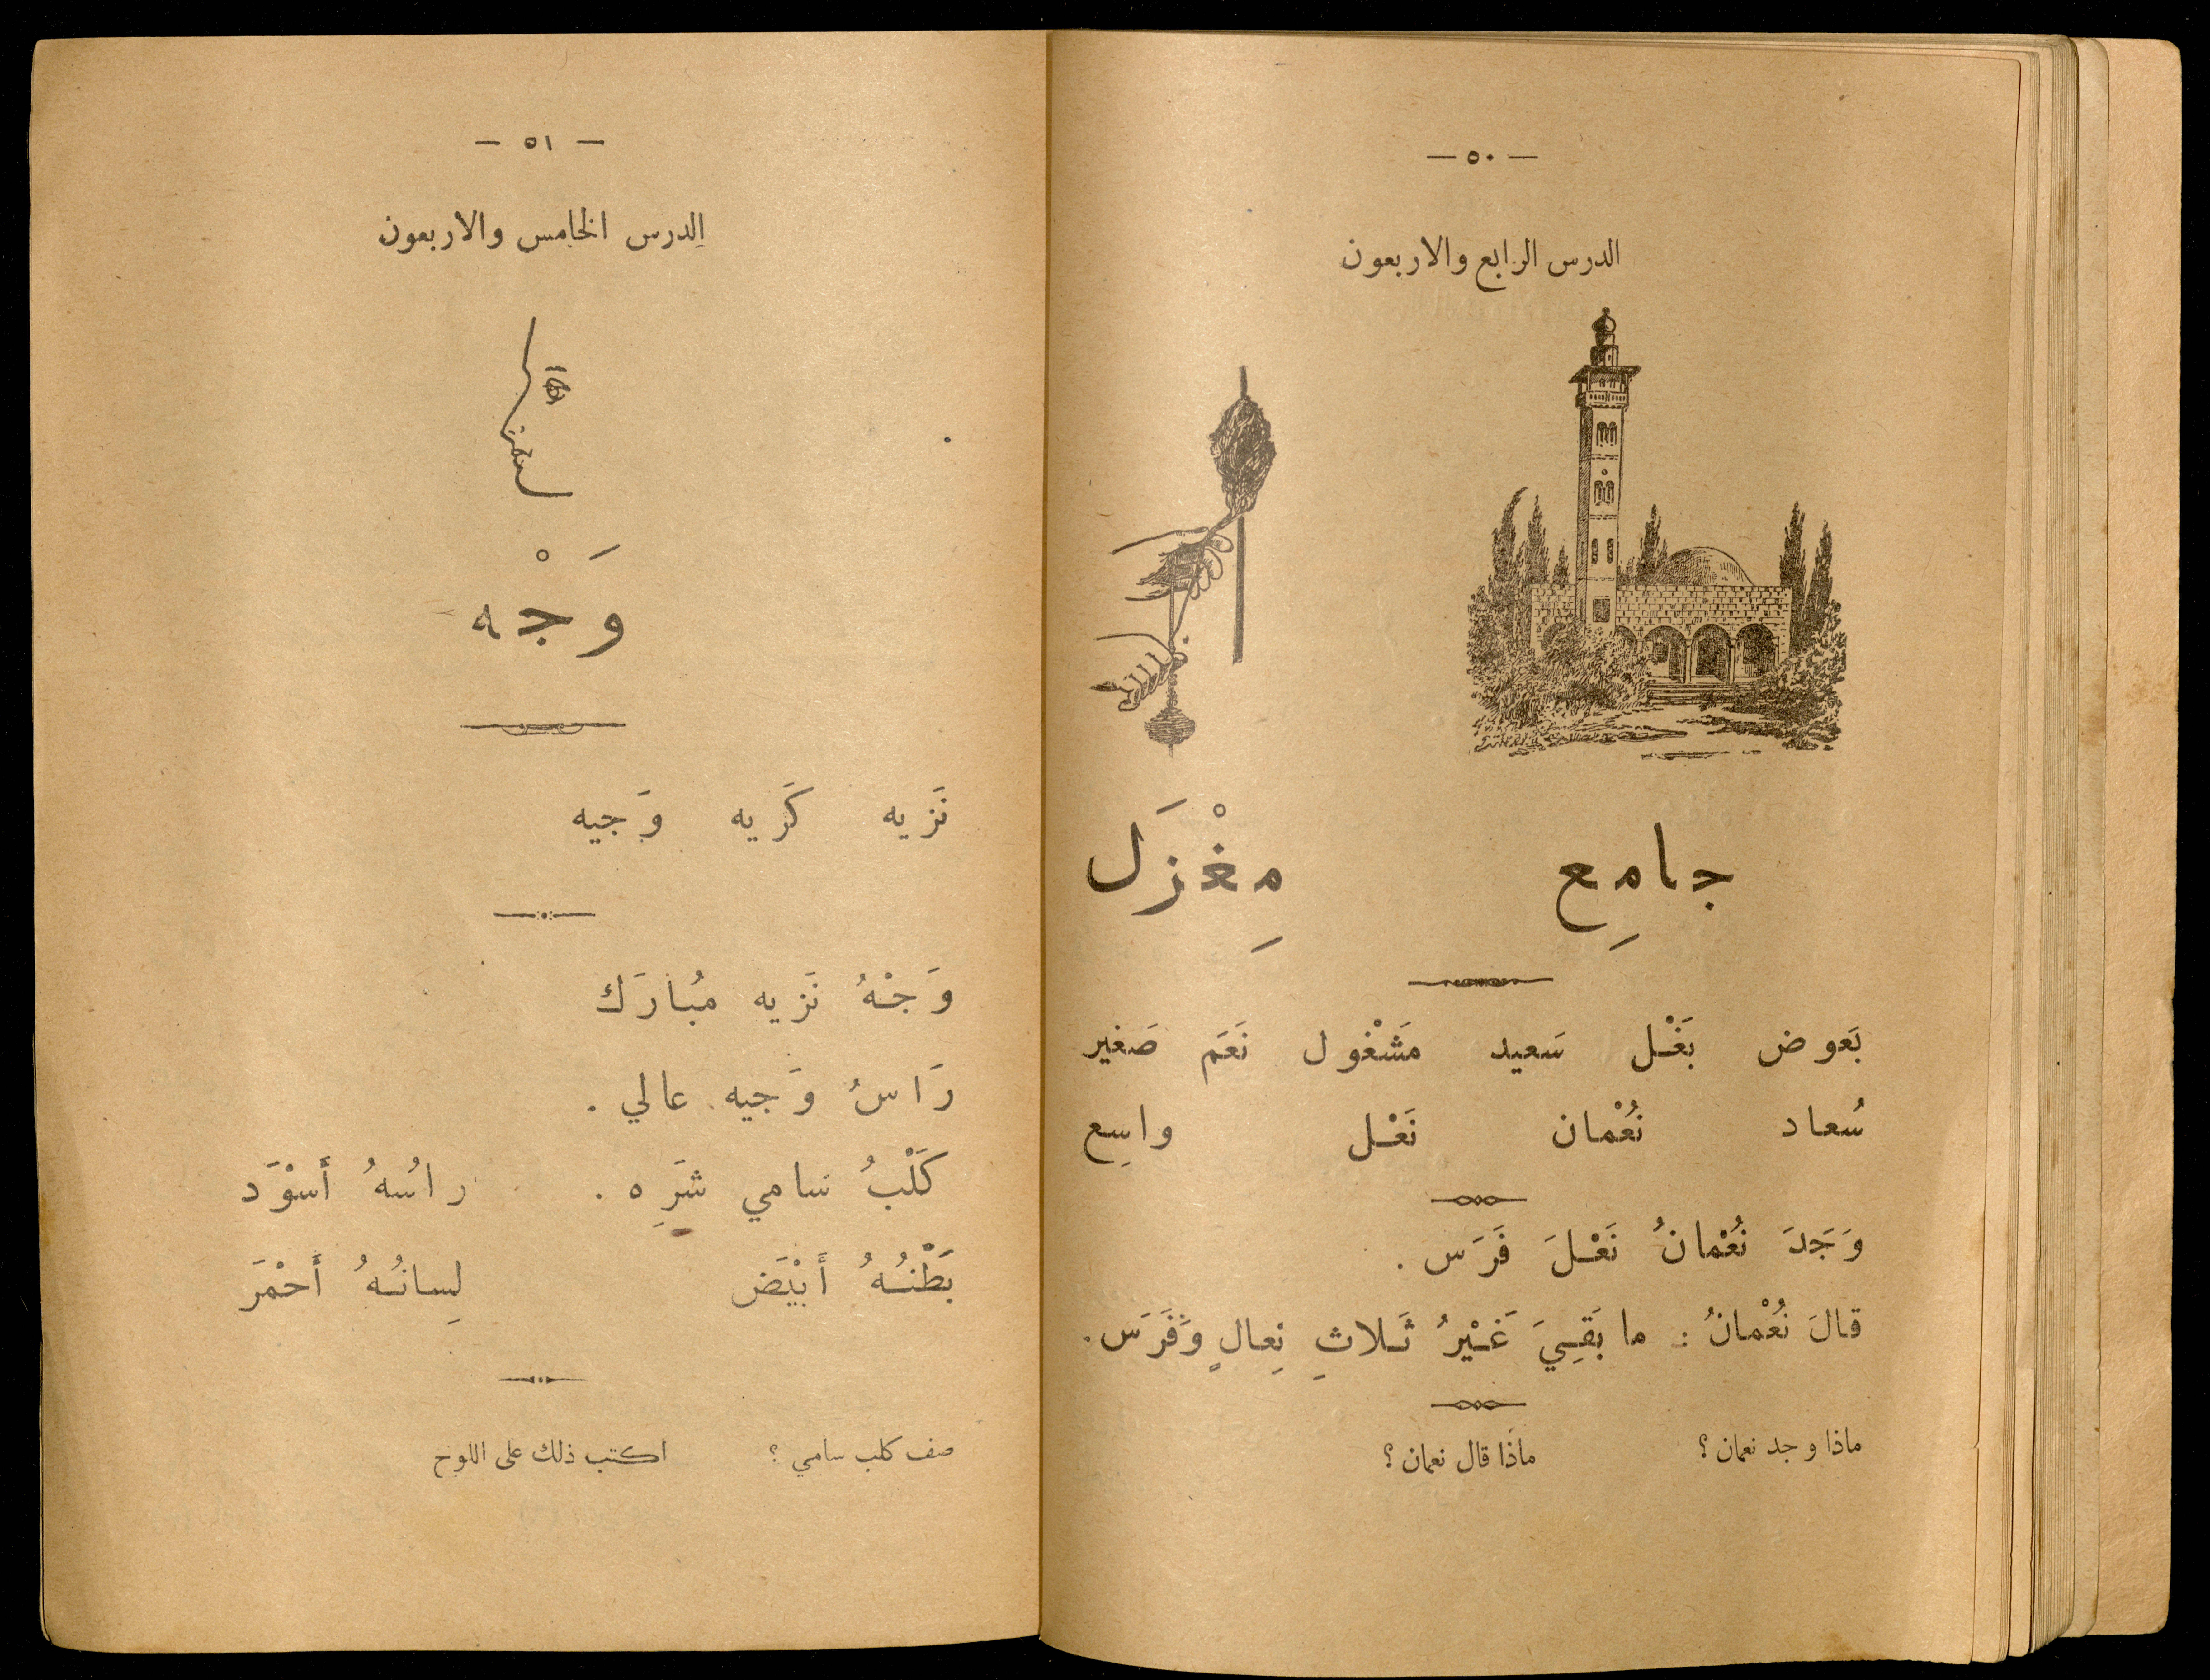 — ٥٠ —
الدرس الرابع والاربعون
جامِع مِغْزَل
بَعوض بَغْل سَعيد مَشْغول نَعَم صَغير
سُعاد نُعْمان نَعْل واسِع
وَجَدَ نُعْمانُ نَعْلَ فَرَس .
قالَ نُعْمانُ : ما بَقِيَ غَيْرُ ثَلاثِ نِعالٍ وَفَرَس .
ماذا وجد نعمان ؟ ماذا قال نعمان ؟
— ٥١ —
الدرس الخامس والاربعون
وَجْه
نَزيه كَريه وَجيه
وَجْهُ نَزيه مُبارَك
رَاسُ وَجيه عالي .
كَلْبُ سامي شَرِه . راسُهُ أَسْوَد
بَطْنُهُ أَبْيَض لِسانُهُ أَحْمَر
صف كلب سامي ؟ اكتب ذلك على اللوح